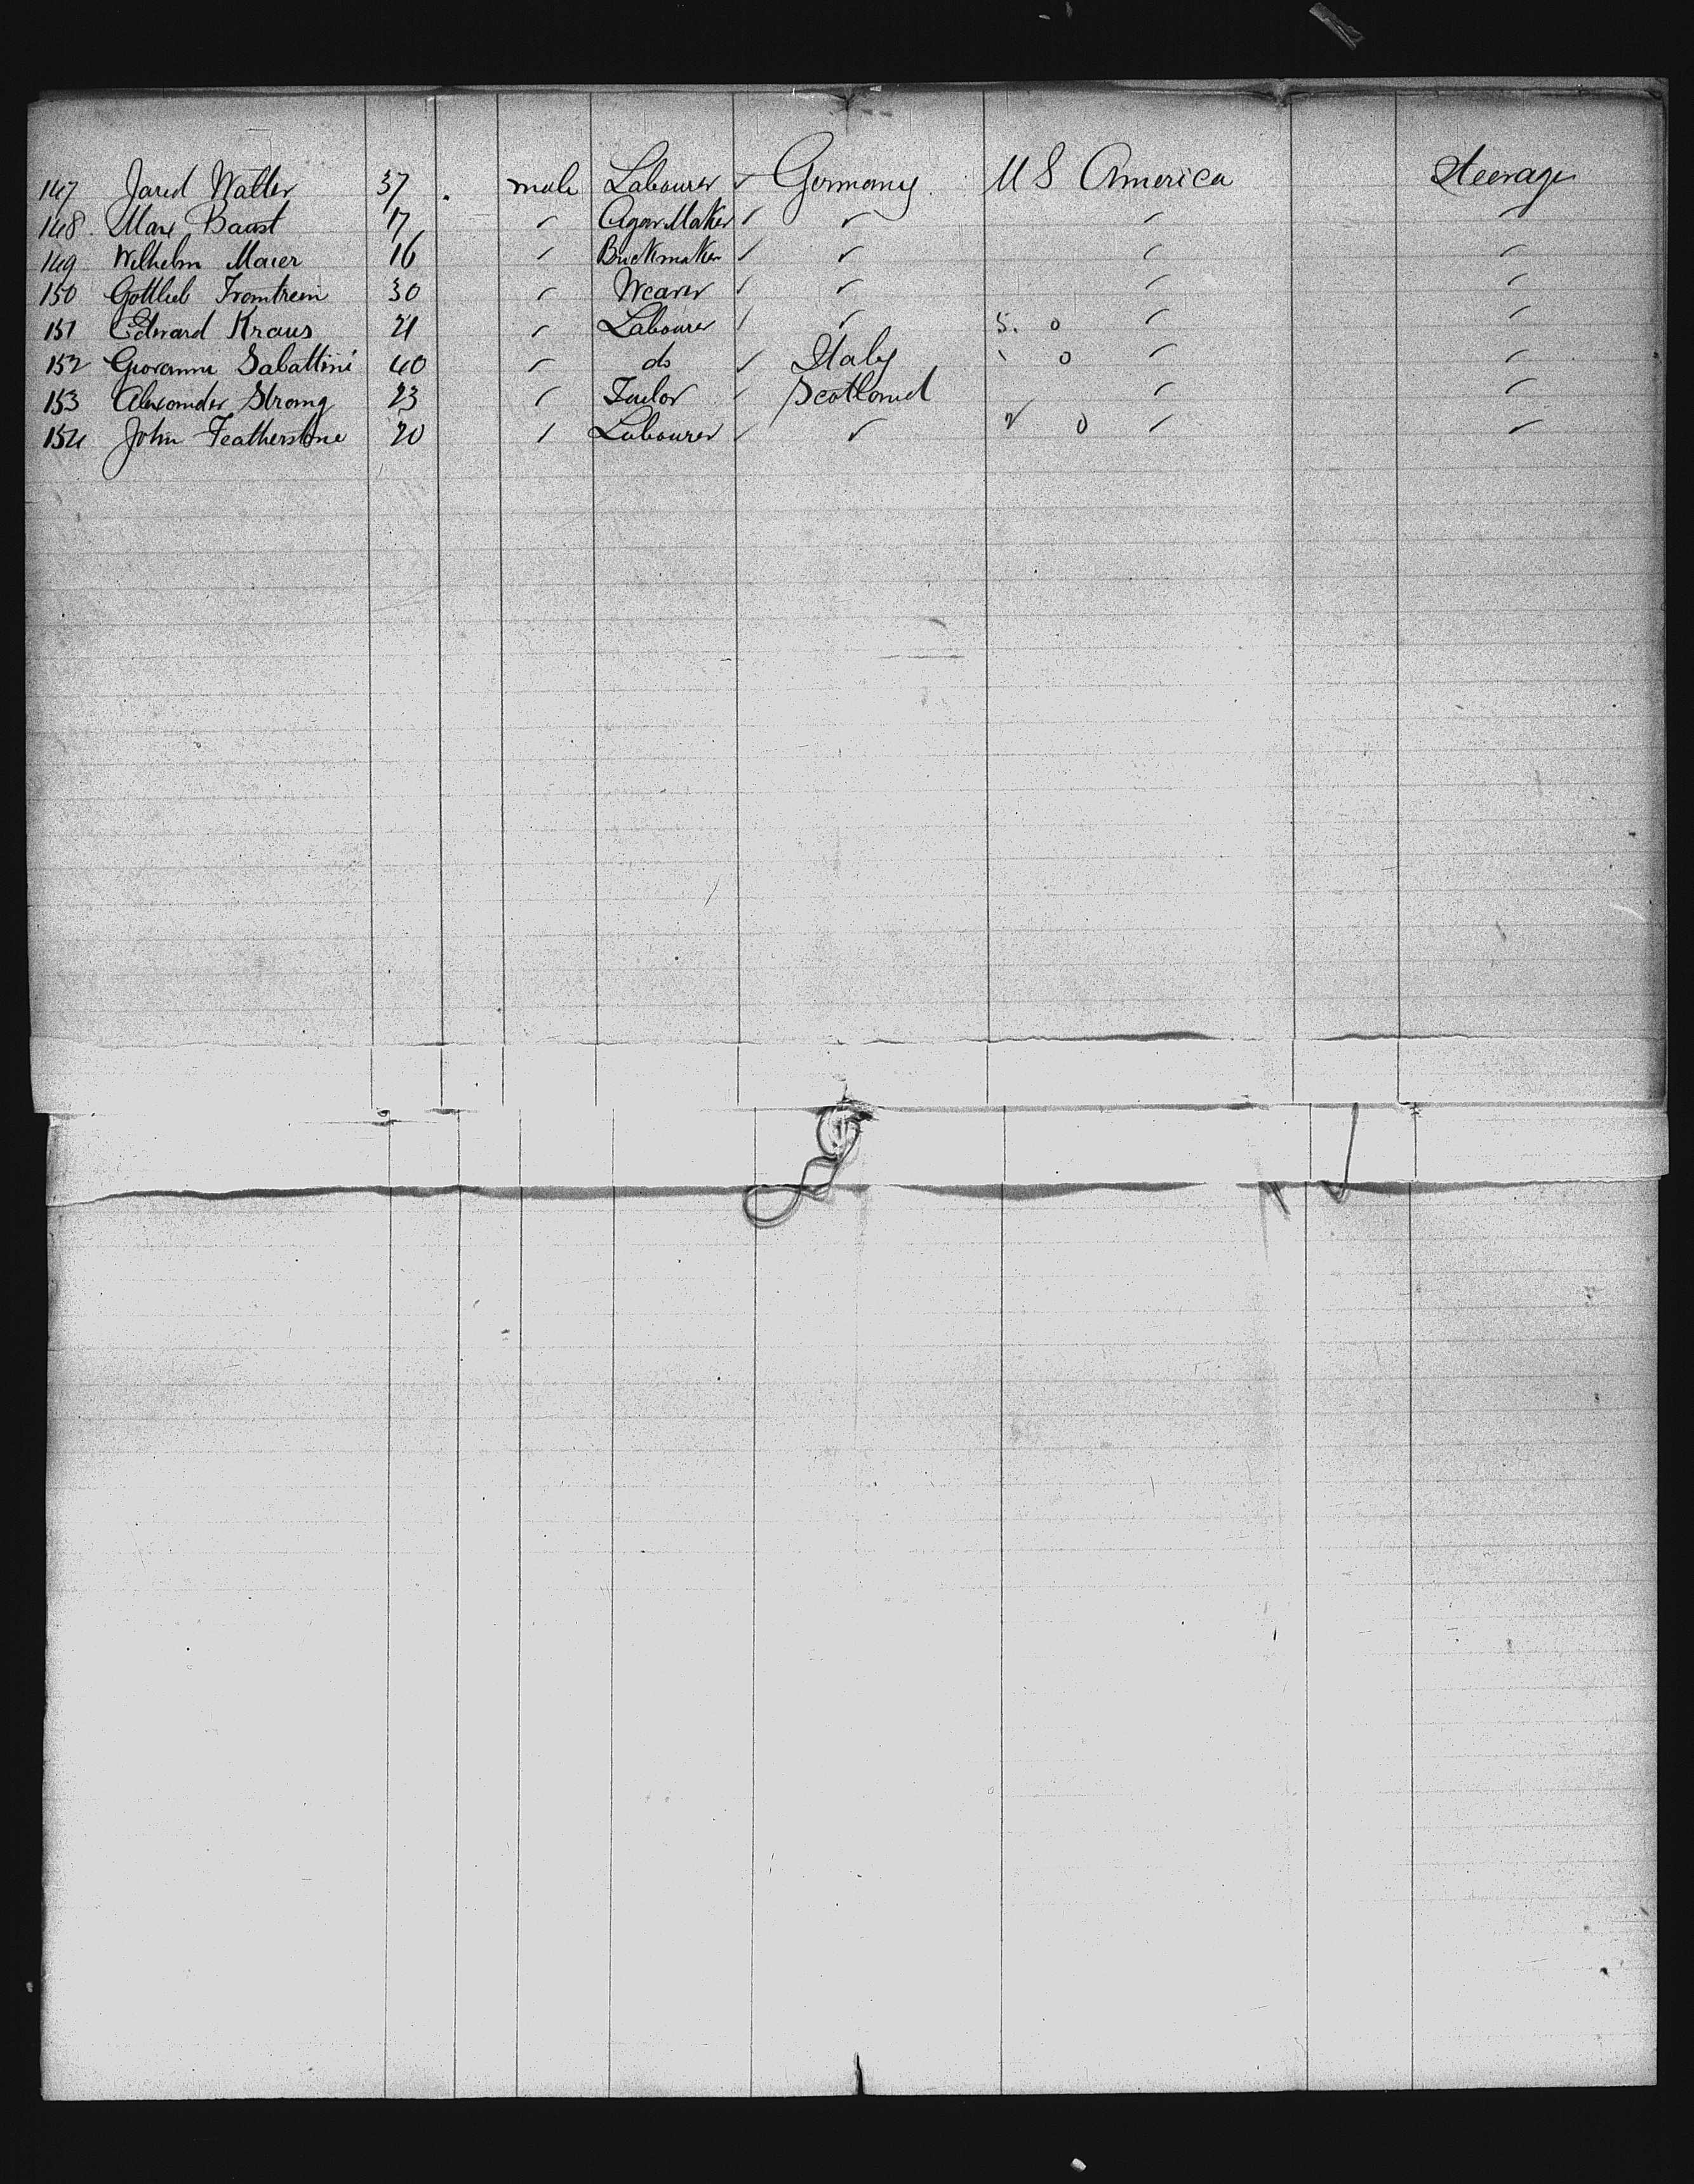 147 Jared Walter 37 . male Labourer ✓ Germany. U S America Steerage
148. Max Baast 17 " Cigar Maker ✓ " " "
149 Wilhelm Maier 16 " Brickmaker ✓ " " "
150 Gottlieb 30 " Weaver ✓ " " "
151 Edward Kraus 21 " Labourer ✓ " 5. 0 " "
152 Giovanni Sabattini 40 " do ✓ Italy 0 " "
153 Alexander Strong 23 " Tailor ✓ Scotland " "
154 John Featherstone 20 " Labourer ✓ " 0 " "